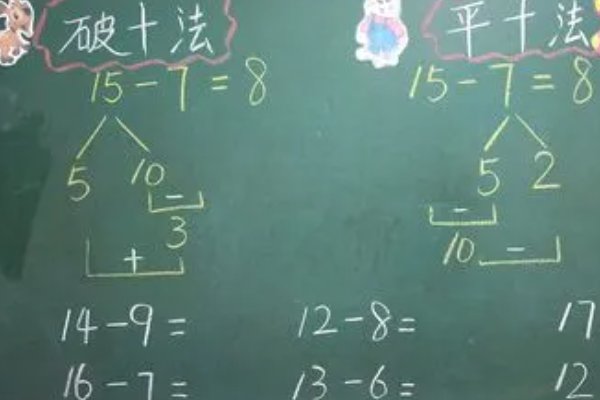 破十法 平十法
15-7=8 15-7=8
5 10 5 2
- -
3 10 -
+
14-9= 12-8= 17
16-7= 13-6= 12